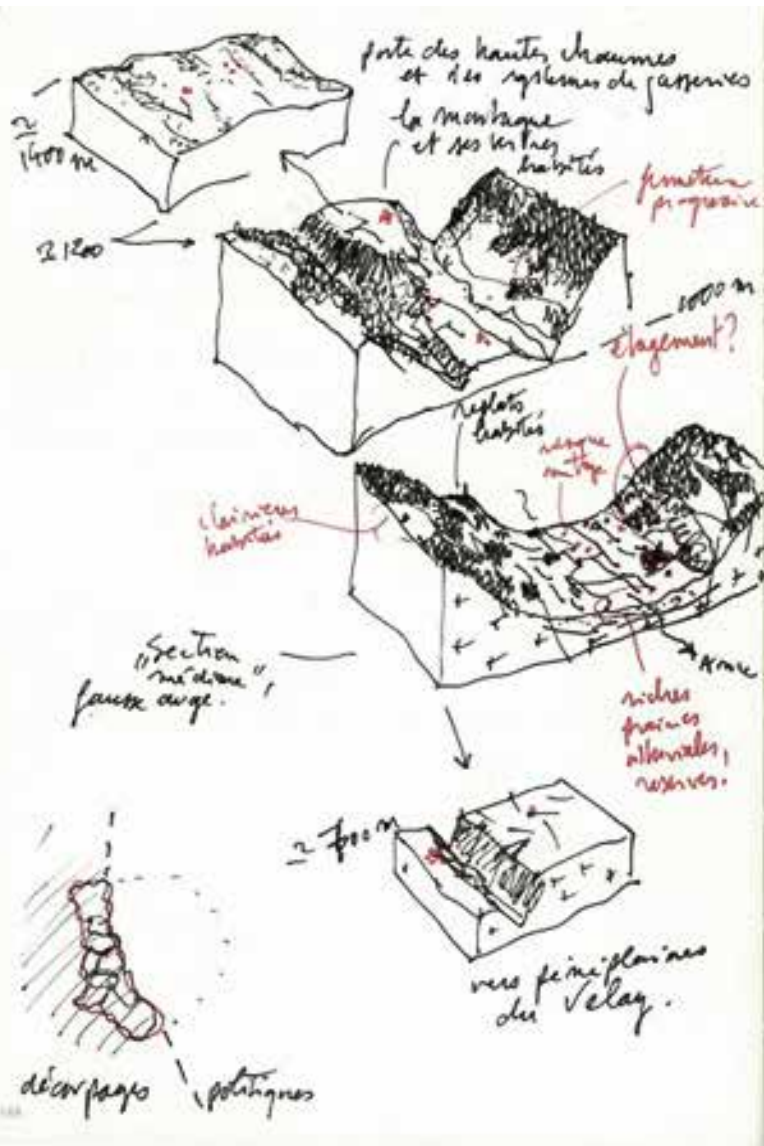 porte des hautes chaumes
et des systèmes de jasseries
la montagne
et ses tertres
habités
≃
1400 m
fermeture
progressive
≃ 1200
1000 m
étagement ?
replats
habités
risque
mitage
clairières
habitées
"Section
médiane",
fausse auge.
riches
plaines
alluviales,
réserves.
≃ 700 m
vers pénéplaines
du Velay.
découpages
politiques